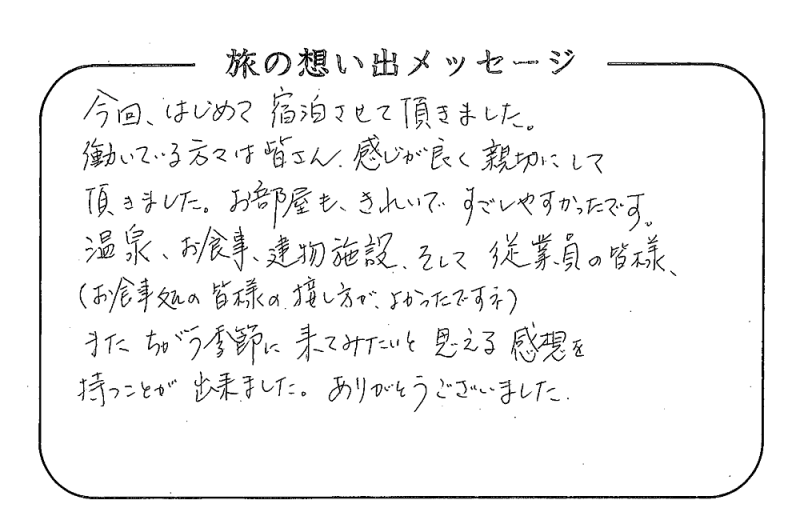 旅の想い出メッセージ
今回、はじめて宿泊させて頂きました。
働いている方々は皆さん、感じが良く親切にして
頂きました。お部屋も、きれいで すごしやすかったです。
温泉、お食事、建物施設、そして 従業員の皆様、
(お食事処の皆様の接し方が、よかったですネ)
また ちがう季節に 来てみたいと思える感想を
持つことが出来ました。ありがとうございました.